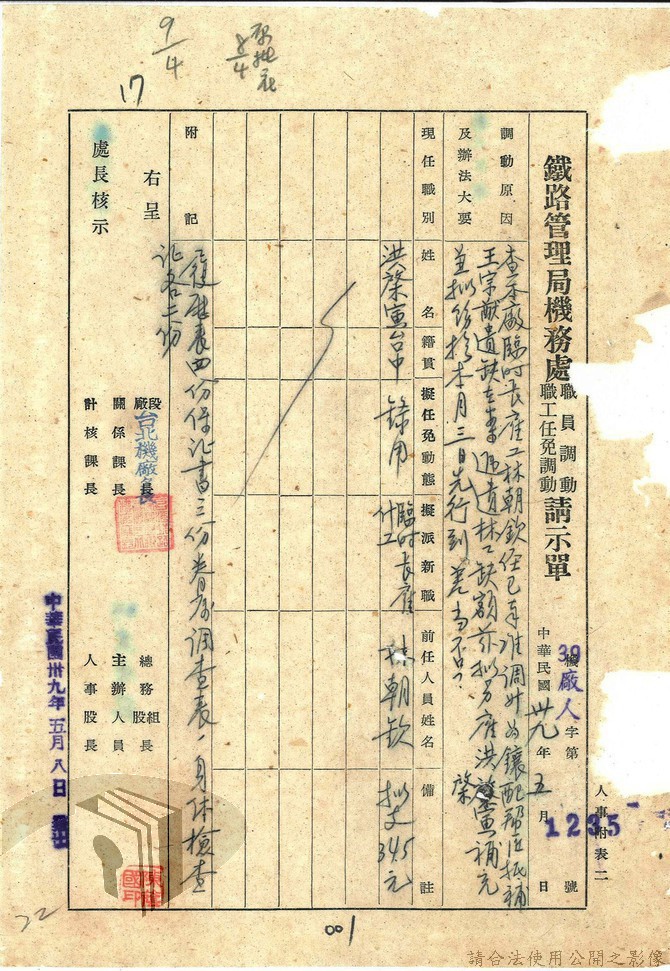 人事附表二
鐵路管理局機務處職員調動職工任免調動請示單
39機廠人字第1235號
中華民國卅九年五月日
調動原因及辦法大要
查本廠臨時長雇工林朝欽經已奉准調升為鑲配幫匠抵補
王宗猷遺缺在案遞遺林工缺額茲擬另雇洪肇寅補充
並擬飭於本月三日先行到差當否?
肇
現任職別
姓名
籍貫
擬任免動態
擬派新職
前任人員姓名
備註
洪肇寅
台中
錄用
臨時長雇什工
林朝欽
擬支345元
附記
履歷表四份保证書三份眷屬調查表、身体檢查
证各二份
右呈
處長核示
段廠長
台北機廠長
關係課長
計核課長
總務組股長
主辦人員
人事股長
中華民國卅九年五月八日
9/4
8/4
17
22
001
請合法使用公開之影像